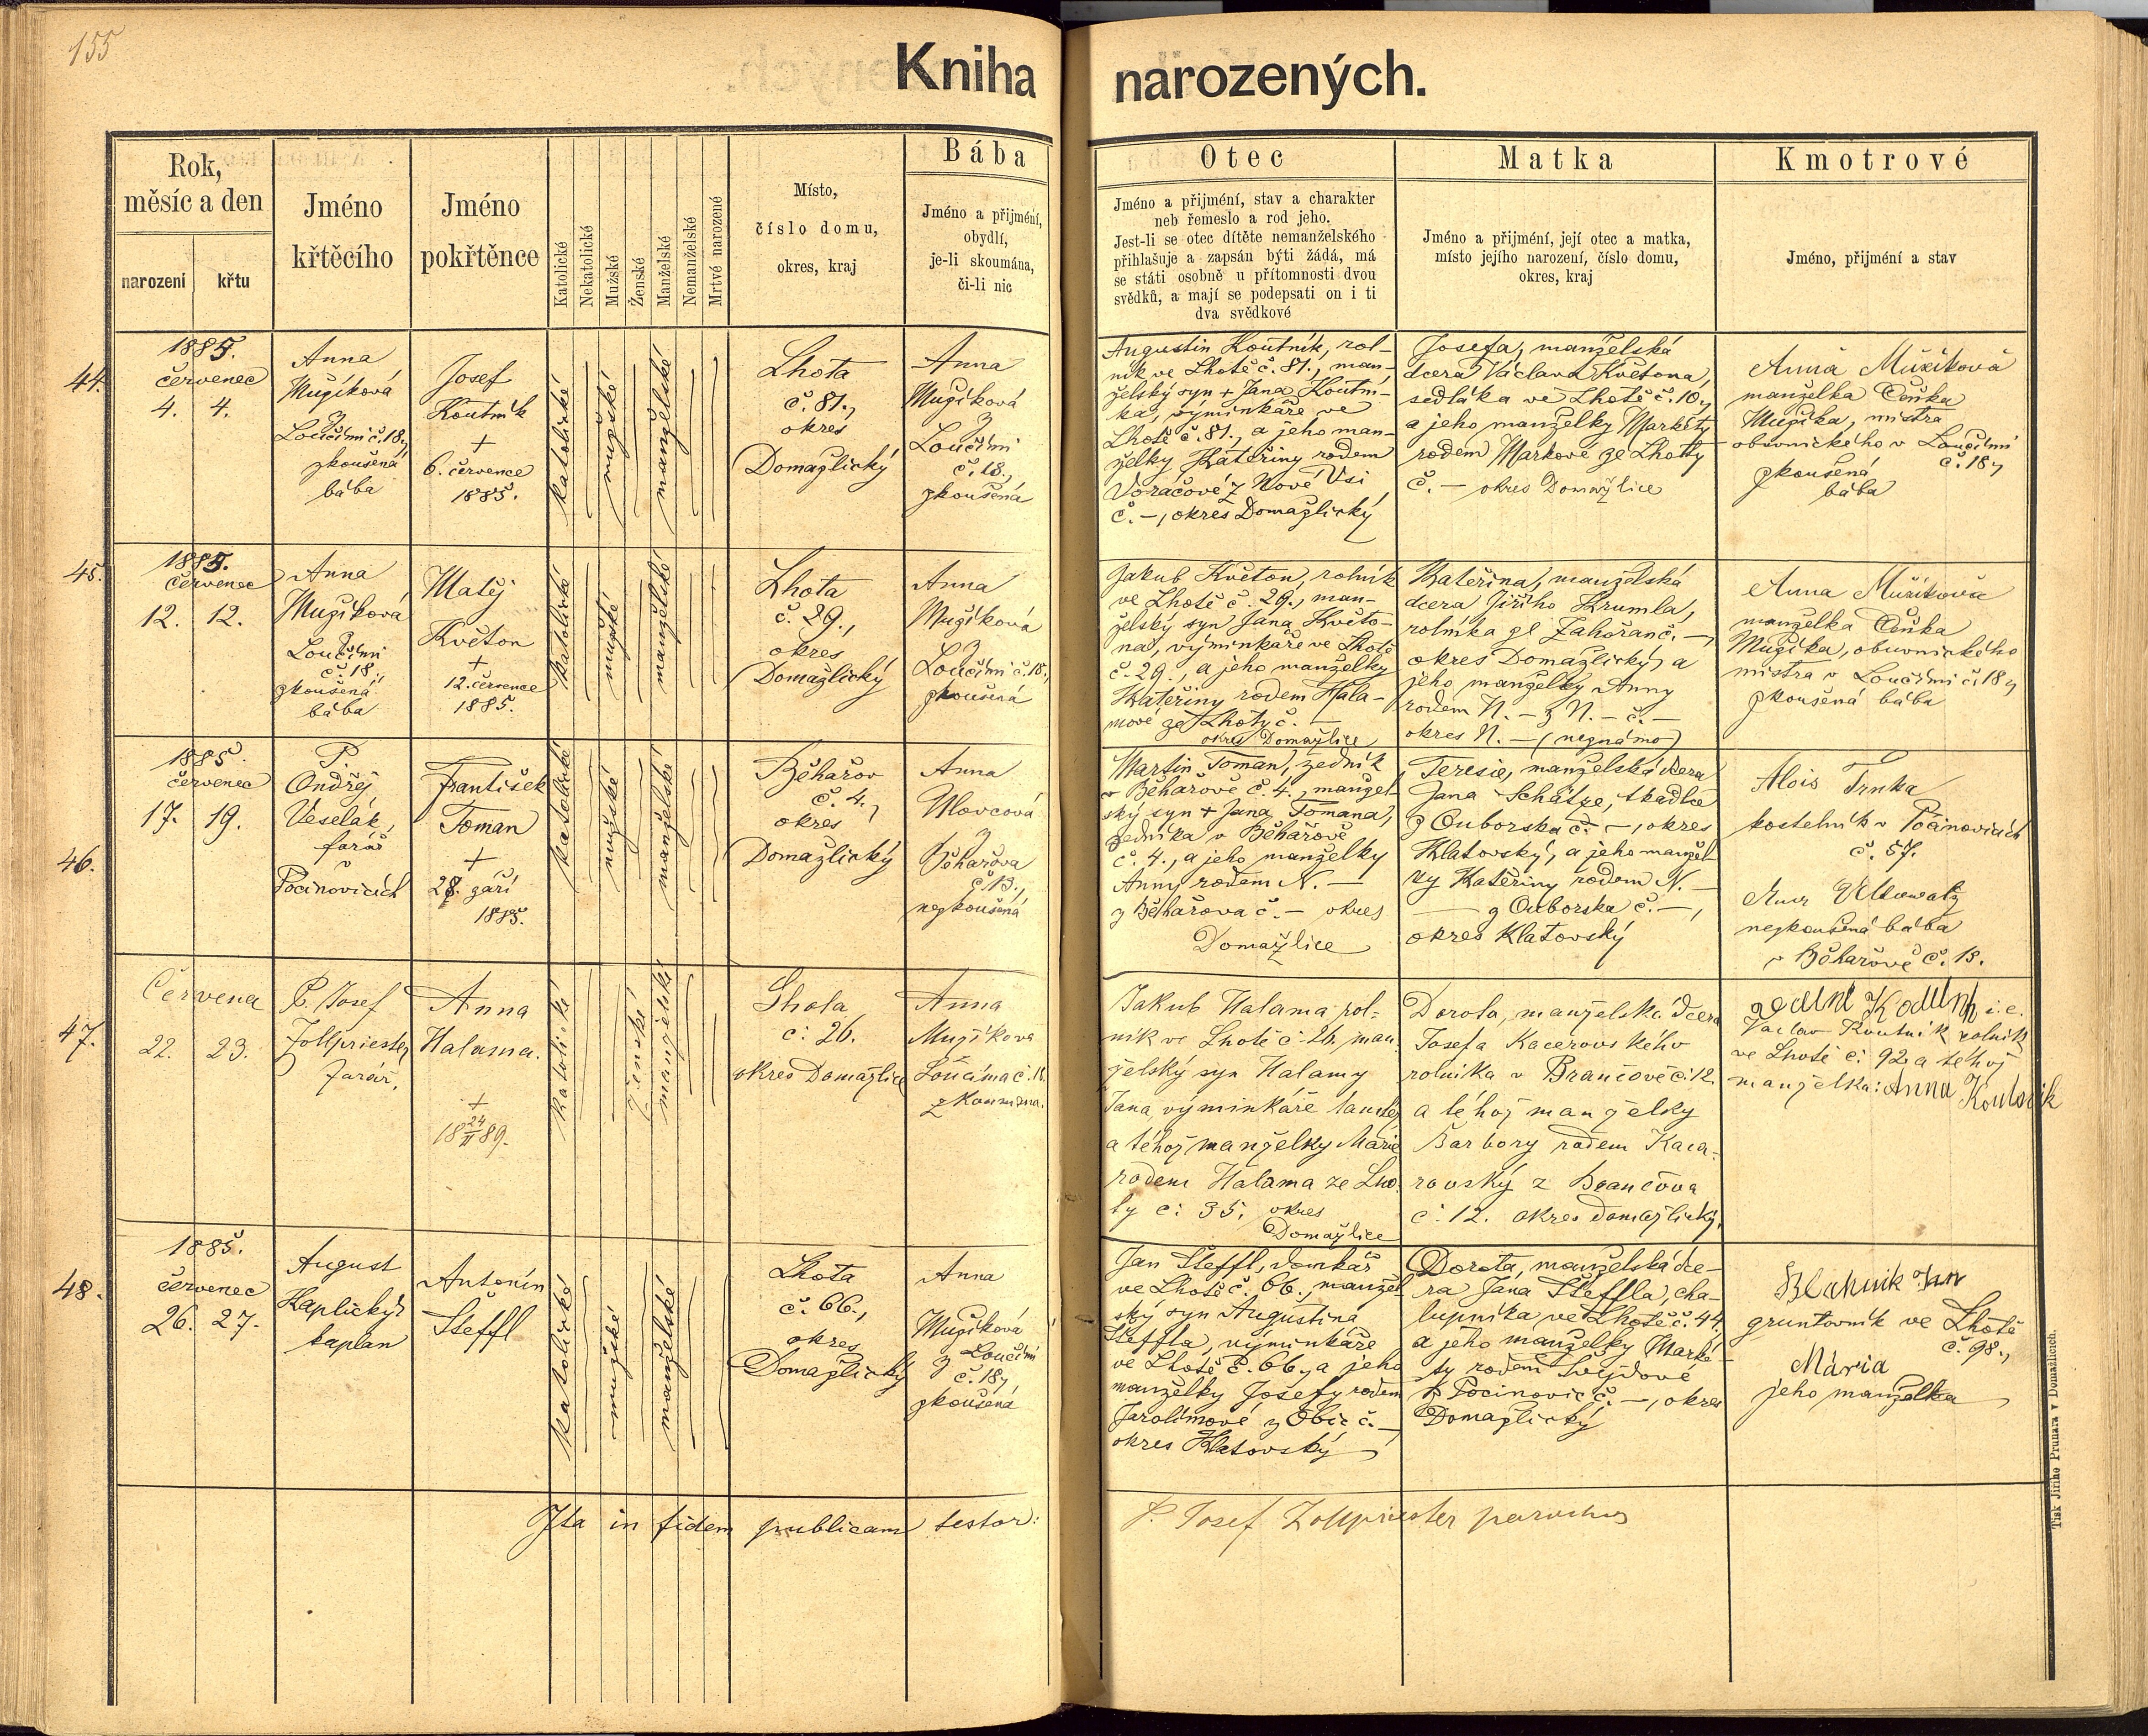 155
Kniha narozených.
Rok,
měsíc a den
narození
křtu
Jméno
křtěcího
Jméno
pokřtěnce
Katolické
Nekatolické
Mužské
Ženské
Manželské
Nemanželské
Mrtvé narozené
Místo,
číslo domu,
okres, kraj
Bába
Jméno a přijmění,
obydlí,
je-li skoumána,
či-li nic
Otec
Jméno a přijmění, stav a charakter
neb řemeslo a rod jeho.
Jest-li se otec dítěte nemanželského
přihlašuje a zapsán býti žádá, má
se státi osobně u přítomnosti dvou
svědků, a mají se podepsati on i ti
dva svědkové
Matka
Jméno a přijmění, její otec a matka,
místo jejího narození, číslo domu,
okres, kraj
Kmotrové
Jméno, přijmění a stav
44.
1885.
červenec
4. 4.
Anna
Mužíková
z
Loučimi č. 18.,
zkoušená
bába
Josef
Koutník
+
6. července
1885.
katolické
mužské
manželské
Lhota
č. 81.,
okres
Domažlický
Anna
Mužíková
z
Loučimi
č. 18.,
zkoušená
Augustin Koutník, rol-
ník ve Lhotě č. 81., man-
želský syn + Jana Koutní-
ka, výminkáře ve
Lhotě č. 81., a jeho man-
želky Kateřiny rodem
Voráčové z Nové Vsi
č. –, okres Domažlický
Josefa, manželská
dcera Václava Květona,
sedláka ve Lhotě č. 10.,
a jeho manželky Markéty
rodem Markové ze Lhoty
č. – okres Domažlice
Anna Mužíková
manželka Čeňka
Mužíka, mistra
obuvnického v Loučimi
č. 18.,
zkoušená
bába
45.
1885.
červenec
12. 12.
Anna
Mužíková
z
Loučimi
č. 18.,
zkoušená
bába
Matěj
Květon
+
12. července
1885.
katolické
mužské
manželské
Lhota
č. 29.,
okres
Domažlický
Anna
Mužíková
z
Loučimi č. 18.,
zkoušená
Jakub Květon, rolník
ve Lhotě č. 29., man-
želský syn Jana Květo-
na, výminkáře ve Lhotě
č. 29., a jeho manželky
Kateřiny rodem Hala-
mové ze Lhoty č. –
okres Domažlice
Kateřina, manželská
dcera Jiřího Krumla,
rolníka ze Zahořan č. –,
okres Domažlický, a
jeho manželky Anny
rodem N. – z N. – č. –
okres N. – (neznámo)
Anna Mužíková
manželka Čeňka
Mužíka, obuvnického
mistra v Loučimi č. 18.,
zkoušená bába
46.
1885.
červenec
17. 19.
P.
Ondřej
Veselák,
farář
v
Pocinovicích
František
Toman
+
28. září
1885.
katolické
mužské
manželské
Běhařov
č. 4.,
okres
Domažlický
Anna
Ulovcová
z
Běhařova
č. 13.,
nezkoušená
Martin Toman, zedník
v Běhařově č. 4., manžel-
ský syn + Jana Tomana,
zedníka v Běhařově
č. 4., a jeho manželky
Anny rodem N. –
z Běhařova č. – okres
Domažlice
Teresie, manželská dcera
Jana Schätze, tkadlce
z Ouborska č. –, okres
Klatovský, a jeho manžel-
ky Kateřiny rodem N. –
– z Ouborska č. –,
okres Klatovský
Alois Trnka
kostelník v Pocinovicích
č. 57.
nezkoušená bába
v Běhařově č. 13.
47.
Červena
22. 23.
P. Josef
Zollpriester
farář.
Anna
Halama.
+
18 24/II 89.
katolické
ženské
manželské
Lhota
č: 26.
okres Domažlice
Anna
Mužíkova
Loučima č. 18.
zkoumana.
Jakub Halama rol-
ník ve Lhotě č. 26. man-
želský syn Halamy
Jana, výminkáře tamtéž
a téhož manželky Marie
rodem Halama ze Lho-
ty č: 35. okres
Domažlice
Dorota, manželská dcera
Josefa Kacerovského
rolníka v Brančově č: 12.
a téhož manželky
Barbory rodem Kace-
rovský z Brančova
č. 12. okres domažlický.
i. e.
Václav Koutník rolník
ve Lhotě č: 92 a téhož
manželka: Anna Koutník
48.
1885.
červenec
26. 27.
August
Haplický
kaplan
Antonín
Šteffl
katolické
mužské
manželské
Lhota
č. 66.,
okres
Domažlický
Anna
Mužíková
z Loučimi
č. 18.,
zkoušená
Jan Šteffl, domkář
ve Lhotě č. 66., manžel-
ský syn Augustina
Šteffla, výminkáře
ve Lhotě č. 66., a jeho
manželky Josefy rodem
Jarolímové z Obic č. –
okres Klatovský
Dorota, manželská dce-
ra Jana Šteffla, cha-
lupníka ve Lhotě č. 44.
a jeho manželky Marké-
ty rodem Svejdové
z Pocinovic č. –, okres
Domažlický
Blahnik Jan
gruntovník ve Lhotě
č. 98.,
Mária
jeho manželka
Ita in fidem publicam testor:
P. Josef Zollpriester parochus
Tisk Jiřího Prunara v Domažlicích.